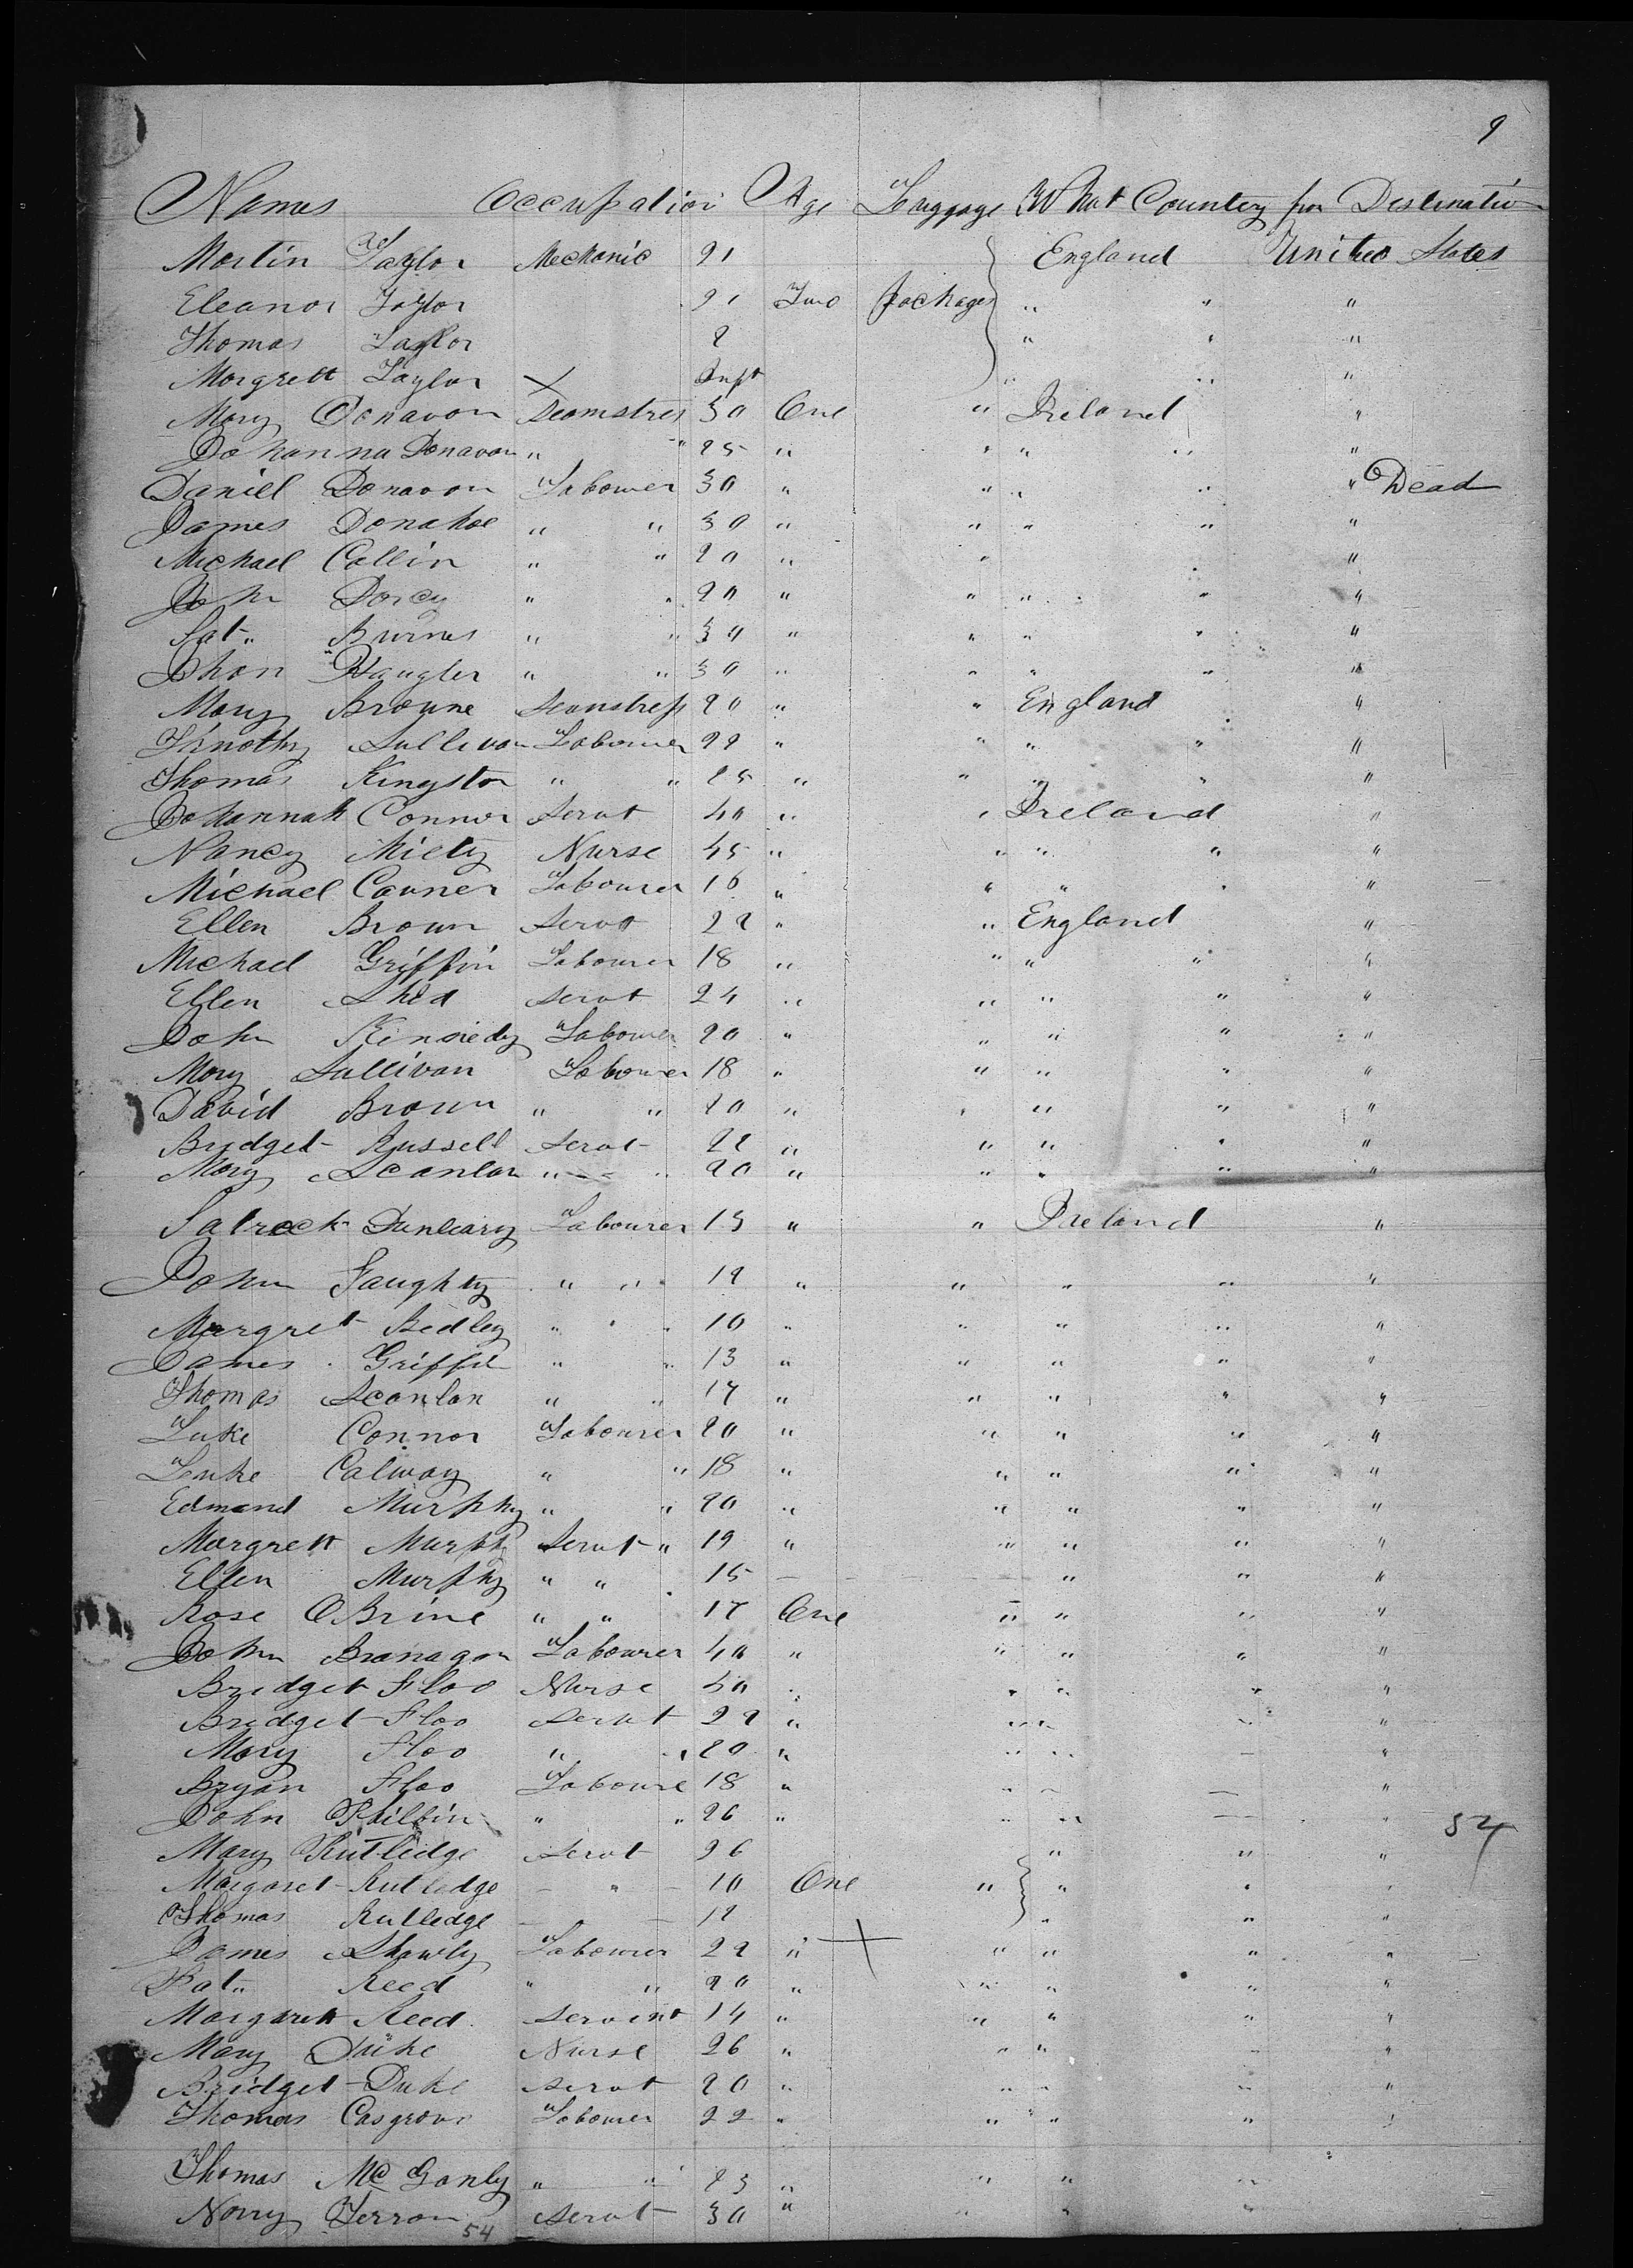 9
Names Occupation Age Luggage What Country from Destination
Martin Taylor Mechanic 21 England United States
Eleanor Taylor 21 Two packages " " "
Thomas Taylor 2 " " "
Margrett Taylor X Inft " " "
Mary Donavon Seamstres 30 One " Ireland "
Johannna Donavon " " 25 " " " " "
Daniel Donavon Labourer 30 " " " " " Dead
James Donahoe " " 30 " " " " "
Michael Collin " " 20 " " "
John Dorcy " " 20 " " " " "
Pat " Burnes " " 30 " " " " "
Jhon " " 30 " " " " "
Mary Browne Seamstress 20 " " England "
Timothy Sullivan Labourer 22 " " " " "
Thomas Kingston " " 25 " " " " "
Johannah Connor Servt 40 " " Ireland "
Nancy Nurse 45 " " " " "
Michael Conner Labourer 16 " " " " "
Ellen Brown Servt 22 " " England "
Michael Griffin Labourer 18 " " " " "
Ellen Shed Servt 24 " " " " "
John Kennedy Labourer 20 " " " " "
Mary Sullivan Labourer 18 " " " " "
David Brown " " 20 " " " " "
Bridget Russell Servt 22 " " " " "
Mary Scanlan " " 20 " " " " "
Patrick Dunleary Labourer 15 " " Ireland "
John " " 12 " " " " "
Margret Bedley " " " 10 " " " " "
James Griffil " " 13 " " " " "
Thomas Scanlan " " 17 " " " " "
Luke Connor Labourer 20 " " " " "
Leuke Calway " " 18 " " " " "
Edmand Murphy " " 20 " " " " "
Margrett Murphy Servt " 19 " " " " "
Ellen Murphy " " 15 — — " " "
Rose OBrine " " 17 One " " " "
John Branagan Labourer 40 " " " " "
Bridget Floo Nurse 50 " " " " "
Bridget Floo Servt 22 " " " " "
Mary Floo " " 20 " " " — "
Bryan Floo Laboure 18 " " " — "
John Philbin " " 26 " " " — "
54
Mary Rutledge Servt 26 " " "
Margaret Rutledge — " — 10 One " " " "
Thomas Rutledge — — 12 " " "
James Shawly Labourer 22 " X " " " "
Pat " Reed " " 20 " " " " "
Margarett Reed Servint 14 " " " " "
Mary Duke Nurse 26 " " " " "
Bridget Duke Servt 20 " " " " "
Thomas Casgrove Labourer 22 " " " " "
Thomas Mc Ganly " " 23 " " " "
Norry Servt 30 " " " "
54